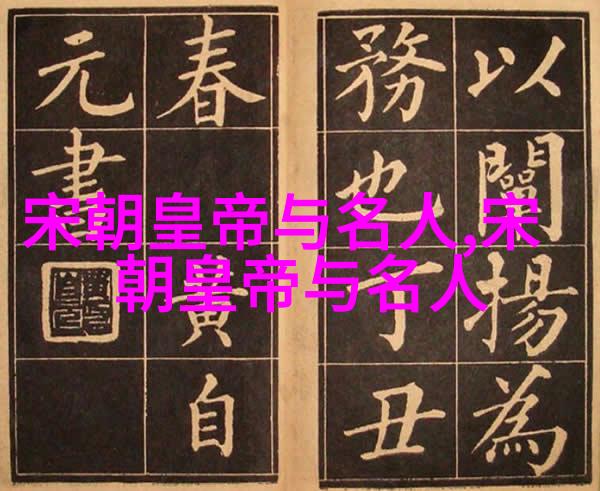 宋朝皇帝与名人,宋
朝皇帝与名人
以闡揚為
務也丁丑
春黃自
元書